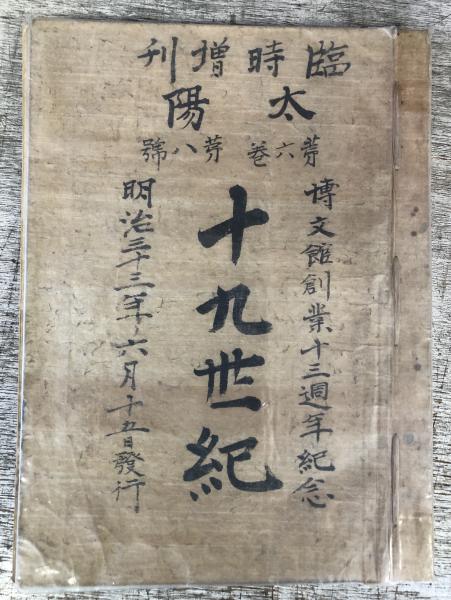 臨時增刊
太陽
第六卷 第八號
博文館創業十三週年紀念
十九世紀
明治三十三年六月十五日發行